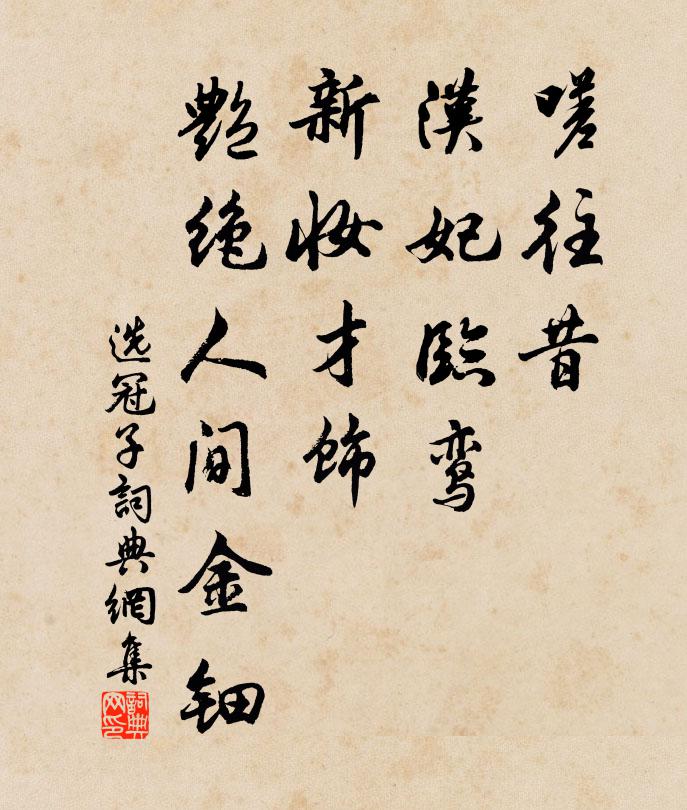 嗟往昔
漢妃臨鸾
新妆才飾
艶绝人间金钿
选冠子詞典網集
詞典网印